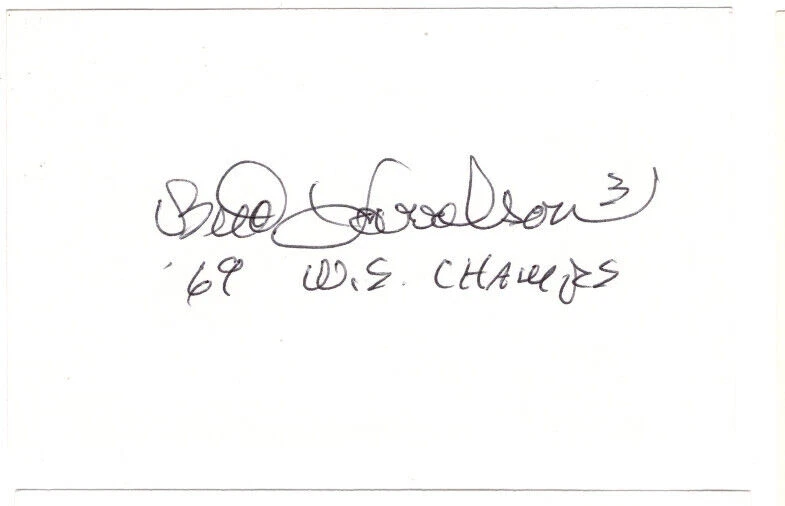 Bud Harrelson 3
'69 W.S. CHAMPS